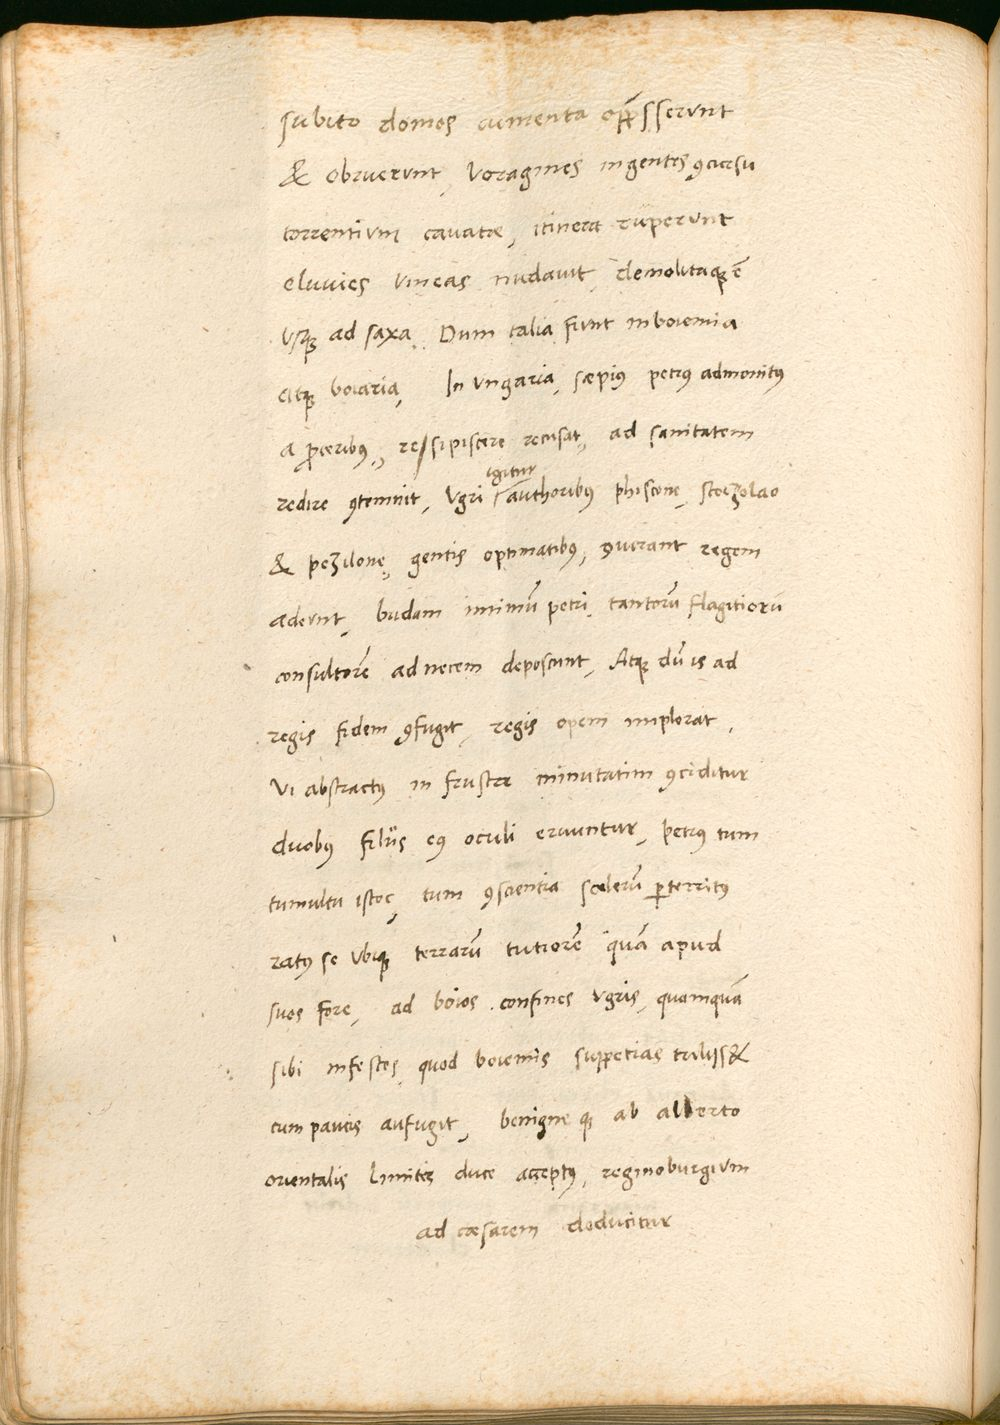 subito domos iumenta opp̄sserunt
& obruerunt, voragines ingentes ꝯcursu
torrentium cauatæ, itinera ruperunt
eluuies vineas nudauit demolitaqꝫ ē
vsqꝫ ad saxa. Dum talia fiunt in boiemia
atqꝫ boiaria, In vngaria, sæpiꝰ petrꝰ admonitꝰ
a ꝓceribꝰ, re/sipiscere recusat, ad sanitatem
redire ꝯtemnit, Vgri igitur authoribꝰ phiscone, stoizolao
& pezilone, gentis optimatibꝰ, ꝯuerant regem
adeunt, budam inimū petri, tantorū flagitiorū
consultorē ad necem deposcunt, Atqꝫ dū is ad
regis fidem ꝯfugit, regis opem implorat,
vi abstractꝰ in frusta minutatim ꝯciditur
duobꝰ filijs eꝰ oculi eruuntur, petrꝰ tum
tumultu istoc, tum ꝯscientia scelerū ꝑterritꝰ
ratꝰ se vbiqꝫ terrarū tutiorē quā apud
suos fore, ad boios confines vgris, quamquā
sibi infestos quod boiemis suppetias tulisset
cum paucis aufugit, benigne qꝫ ab alberto
orientalis limitis duce acceptꝰ, reginoburgium
ad cæsarem deducitur